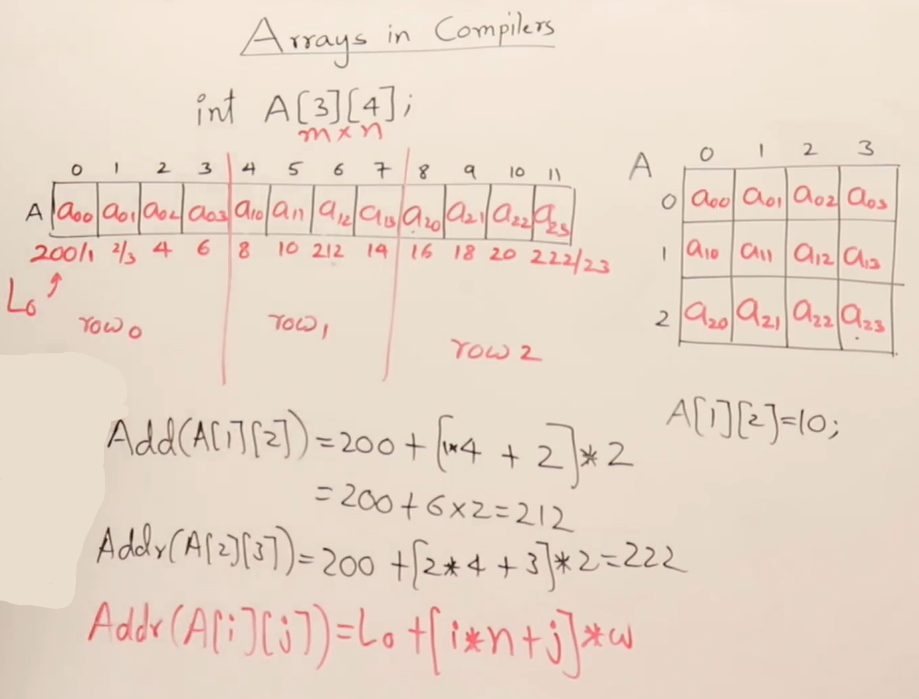 Arrays in Compilers
int A[3][4];
m×n
0 1 2 3 4 5 6 7 8 9 10 11
A a00 a01 a02 a03 a10 a11 a12 a13 a20 a21 a22 a23
200/1 2/3 4 6 8 10 212 14 16 18 20 222/23
L0
row0 row1 row 2
A 0 1 2 3
0 a00 a01 a02 a03
1 a10 a11 a12 a13
2 a20 a21 a22 a23
A[1][2]=10;
Add(A[1][2])=200+[1*4+2]*2
=200+6×2=212
Addr(A[2][3])=200+[2*4+3]*2=222
Addr(A[i][j])=L0+[i*n+j]*w